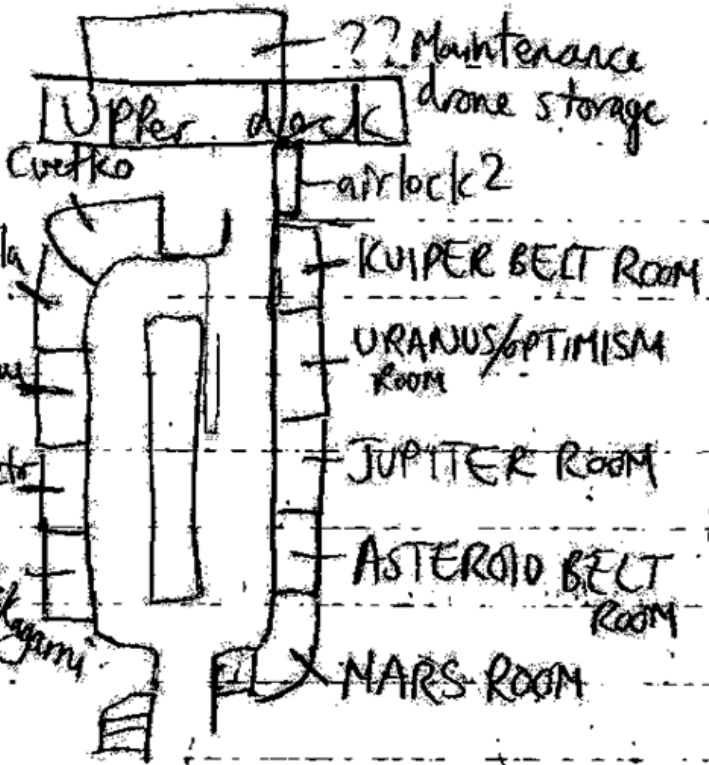 ?? Maintenance
drone storage
Upper dock
Cvetko
airlock 2
KUIPER BELT ROOM
URANUS/OPTIMISM
ROOM
JUPITER ROOM
ASTEROID BELT
ROOM
MARS ROOM